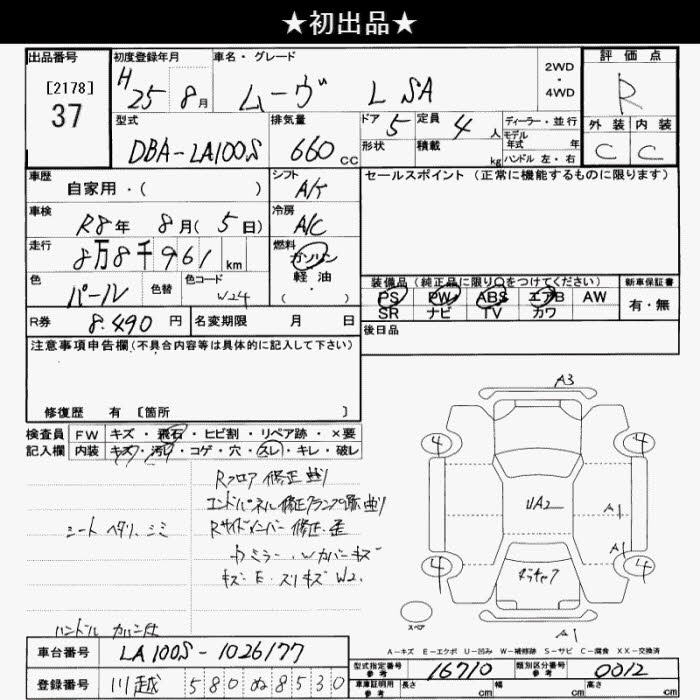 ★初出品★
出品番号
[2178]
37
初度登録年月
H 25 8月
車名・グレード
ムーヴ L SA
2WD
・
4WD
評価点
R
外装 内装
C C
型式
DBA-LA100S
排気量
660 cc
ドア 5
形状
定員 4 人
積載 kg
ディーラー・並行
モデル
年式 年
ハンドル 左・右
車歴
自家用・( )
シフト
A/T
セールスポイント (正常に機能するものに限ります)
車検
R8年 8月(5日)
冷房
A/C
走行
8万8千961 km
燃料
ガソリン
軽油
( )
色
パール
色替
色コード
W24
装備品(純正品に限り○をつけてください)
PS PW ABS エアB AW
SR ナビ TV カワ
新車保証書
有・無
R券 8,490円
名変期限 月 日
後日品
注意事項申告欄(不具合内容等は具体的に記入して下さい)
修復歴 有 [箇所 ]
検査員 FW キズ・飛石・ヒビ割・リペア跡・×要
記入欄 内装 キズ・汚れ・コゲ・穴・スレ・キレ・破レ
Rフロア 修正 曲り
エンドパネル修正クランプ跡 曲り
シート ヘタリ、シミ
Rサイドメンバー 修正・歪
ミラー・Wカバーキズ
キズ・E・スリキズ W2.
ハンドル
A3
4 4
UA2
A1
A1
4 4
スペア
A1
A-キズ E-エクボ U-凹み W-補修跡 S-サビ C-腐食 XX-交換済
車台番号 LA100S-1026177
登録番号 川越 580 ぬ 8530
型式指定番号
参考
16710
類別区分番号
参考
0012
車庫証明用
参考
長さ cm
幅 cm
高さ cm